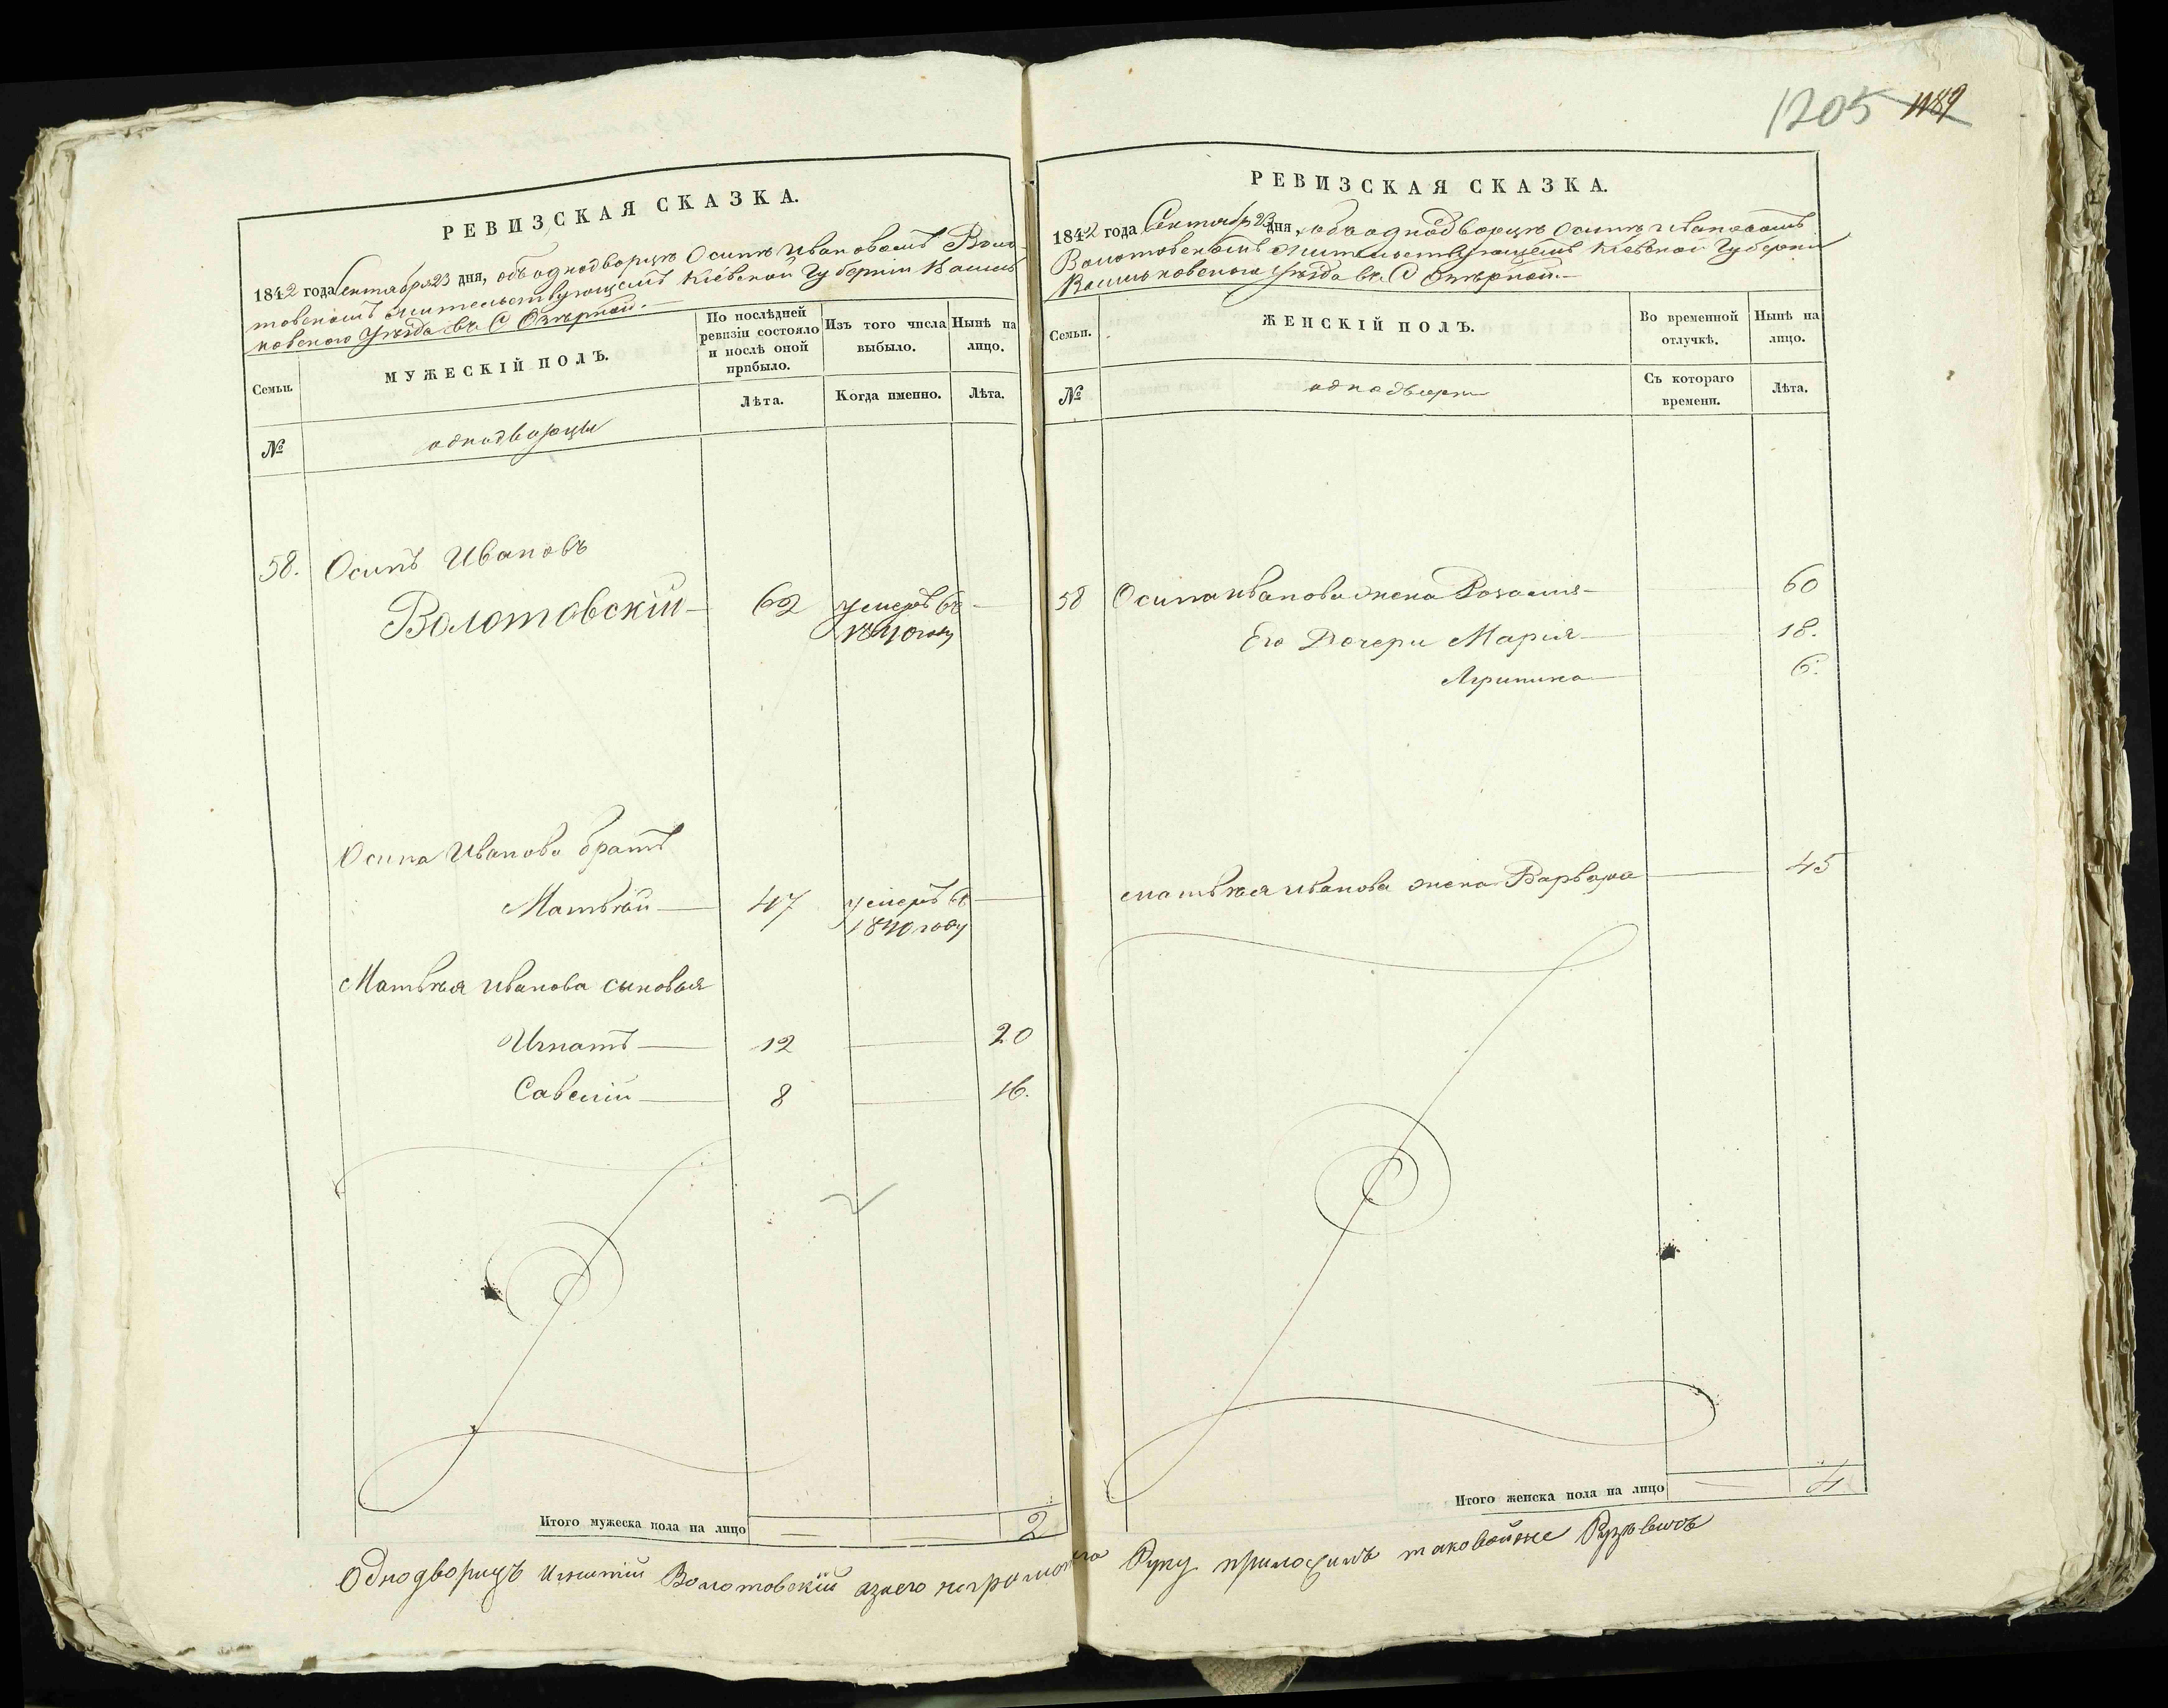 1205 1189
РЕВИЗСКАЯ СКАЗКА.
1842 года Сентября 23 дня, объ однодворцѣ Осипѣ Ивановомъ Воло-
товскомъ жительствующемъ Кіевской Губерніи Василь
ковского Уѣзда въ С Озѣрной.
Семьи.
МУЖЕСКІЙ ПОЛЪ.
По послѣдней
ревизіи состояло
и послѣ оной
прибыло.
Изъ того числа
выбыло.
Нынѣ на
лицо.
№
однодворцы
Лѣта.
Когда именно.
Лѣта.
58. Осипъ Ивановъ
Волотовскій 62 умеръ въ
1840 году
Осипа Иванова братъ
Матвѣй 47 умеръ въ
1840 году
Матвѣя Иванова сыновья
Игнатъ 12 20
Савелій 8 16.
Итого мужеска пола на лицо — 2
РЕВИЗСКАЯ СКАЗКА.
1842 года Сентября 23 дня, объ однодворцѣ Осипѣ Ивановомъ
Волотовскомъ жительствующемъ Кіевской Губерніи
Васильковского Уѣзда въ С Озѣрной.
Семьи.
ЖЕНСКІЙ ПОЛЪ.
Во временной
отлучкѣ.
Нынѣ на
лицо.
№
однодворки
Съ котораго
времени.
Лѣта.
58 Осипа Иванова жена Розалия 60
Его Дочери Марія 18.
Агрипина 6.
Матвѣя Иванова жена Варвара 45
Итого женска пола на лицо — 4
Однодворецъ Игнатій Волотовскій а за его неграмотного Руку приложилъ таковой же